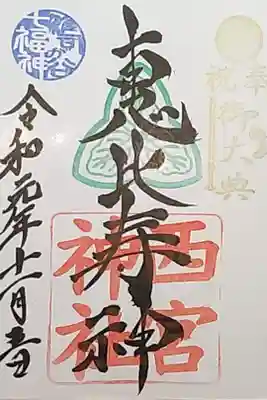 奉祝御大典
恵比寿神
西宮
神社
七福神
令和元年十一月吉日